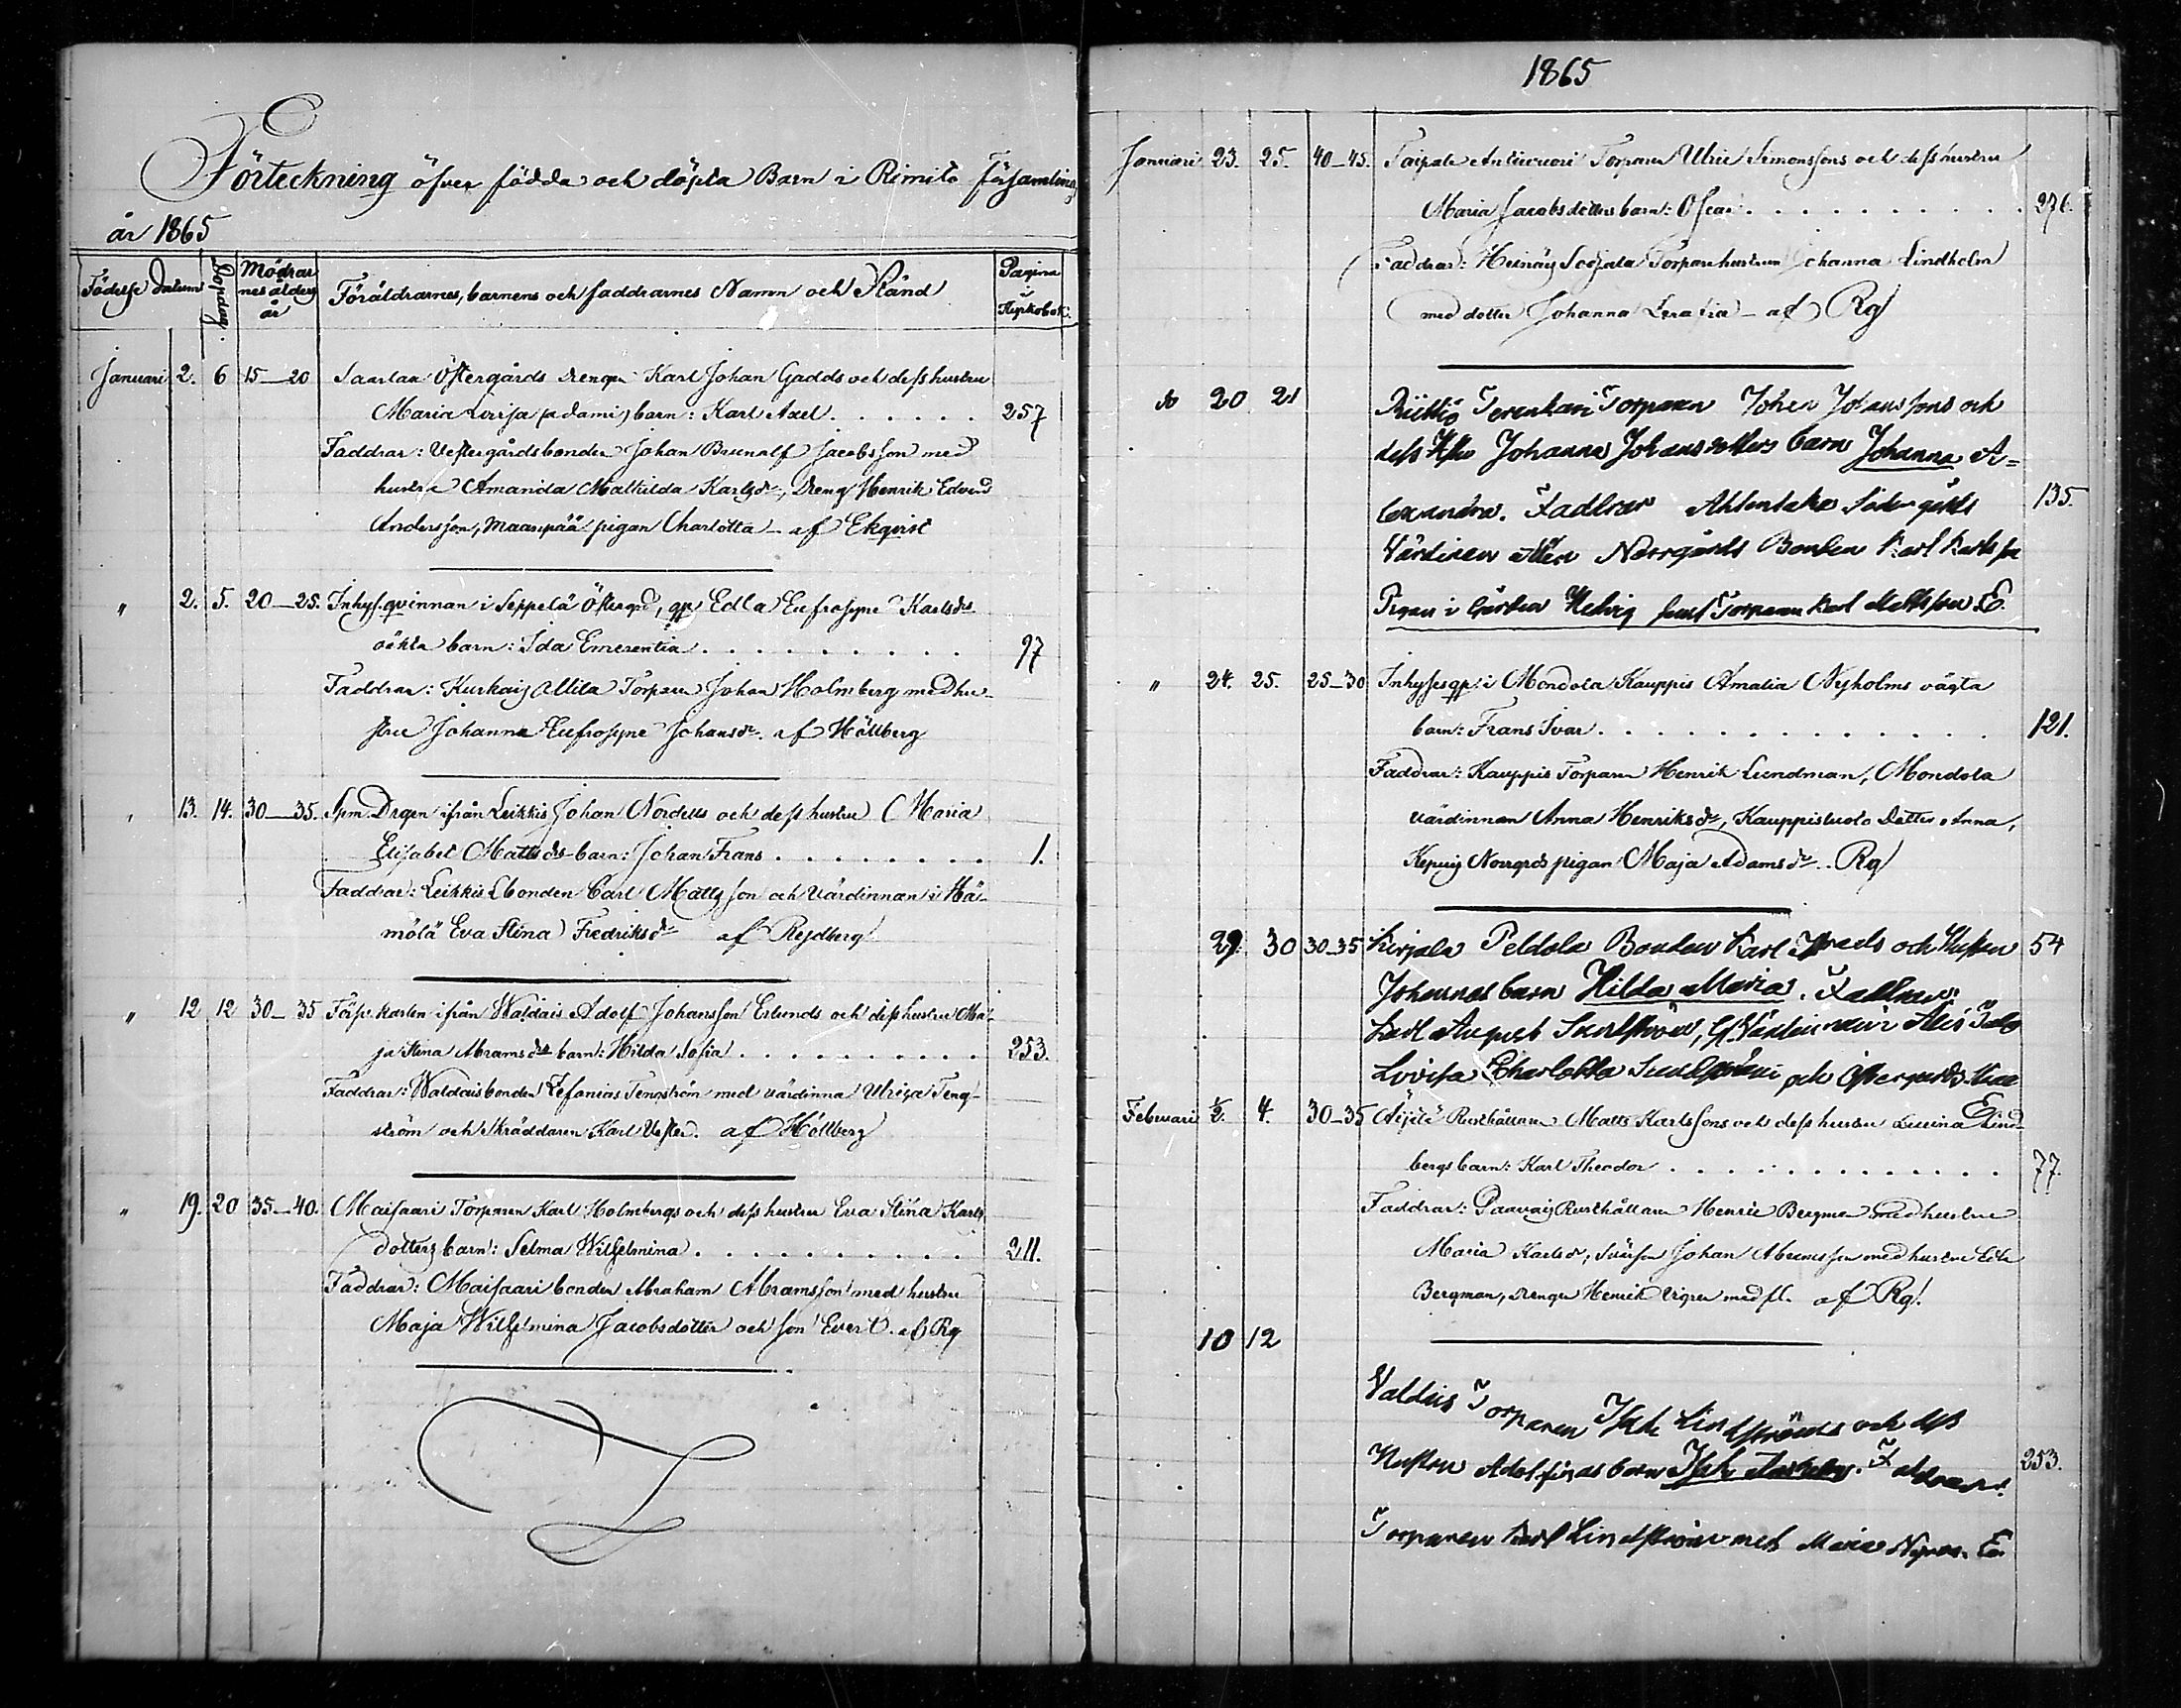 Förteckning öfver födda och döpta Barn i Rimito Församling
år 1865
Födelse Datum Dopdag Mödrarnes ålder år Föräldrarnes, barnens och faddrarnes Namn och Stånd Pagina i Kyrkobok.
Januari 2. 6 15_20 Saarlax Östergårds drengen Karl Johan Gadds och dess hustru
Maria Lovisa barn: Karl Axel 257
Faddrar: Vestergårdsbonden Johan Brunolf Jacobsson med
hustru Amanda Mathilda Karlsdr, Dreng Henrik Edvard
Andersson, Maanpää pigan Charlotta _ af Ekqvist
" 2. 5. 20_25. Inhys. qvinnan i Seppelä Östergrd, qp Edla Eufrosyne Karlsdrs
oäkta barn: Ida Emerentia 97
Faddrar: Kurkais Allila Torparen Johan Holmberg med hu-
stru Johanna Eufrosyne Johansdr. af Hällberg
" 13. 14. 30_35. Spm. Drgen ifrån Leikkis Johan Nordells och dess hustru Maria
Elisabet Mattsdrs barn: Johan Frans 1.
Faddrar: Leikkis bonden Carl Mattsson och värdinnan i Hä-
mölä Eva Stina Fredriksdr af Rydberg
" 12 12 30_35 Förspr. karlen ifrån Waldais Adolf Johansson Erlunds och dess hustru Ma-
ja Stina Abramsdrs barn: Hilda Sofia 253.
Faddrar: Waldais bonden Zefanias Tengström med värdinna Ulrica Teng-
ström och Skräddaren Karl Vester. af Hällberg
" 19. 20 35_40. Maisaari Torparen Karl Holmbergs och dess hustru Eva Stina Karls
dotters barn: Selma Wilhelmina 211.
Faddrar: Maisaari bonden Abraham Abramsson med hustru
Maja Wilhelmina Jacobsdotter och son Evert. af Rg
1865
Januari 23. 25. 40_45. Taipale Torparen Ulric Simonssons och dess hustru
Maria Jacobsdotters barn: Oscar 276.
Faddrar: Heinäis Torparehustrun Johanna Lindholm
med dotter Johanna _ af Rg
do 20 21 Torparen Johan Johanssons och
dess Hu Johanna Johansdotters barn Johanna A=
lexandra. Faddrar Södergårds 135.
Värdinnan Norrgårds Bonden Karl Karlsson
Pigan i Gården Hedvig samt Torparen Karl Mattsson E.
" 24. 25. 25_30 Inhyses qp i Mondola Kauppis Amalia Nyholms oägta
barn: Frans Ivar 121.
Faddrar: Kauppis Torparen Henrik Lundman, Mondola
värdinnan Anna Henriksdr, Kauppistuolo Dotter Anna,
Norrgrds pigan Maja Adamsdr. Rg
29. 30 30_35 Kirjala Peldola Bonden Karl och Hustru 54
Johannas barn Hilda Maria. Faddrar:
Karl August Sundström, Värdinnan i
Lovisa Charlotta och Östergårds
Februari ½. 4. 30_35 Äijälä Rusthållaren Matts Karlssons och dess hustru Lovina Lind-
bergs barn: Karl Theodor 77.
Faddrar: Paavais Rusthållaren Henric Bergman med hustru
Maria Karlsdr, Svärson Johan Abramsson med hustru Edla
Bergman, drengen Henrik Vigren med fl. af Rg.
10 12
Valdais Torparen Isak Lindströms och dess
Hustru Adolfinas barn Isak. Faddrar: 253.
Torparen Karl Lindström med Maria E